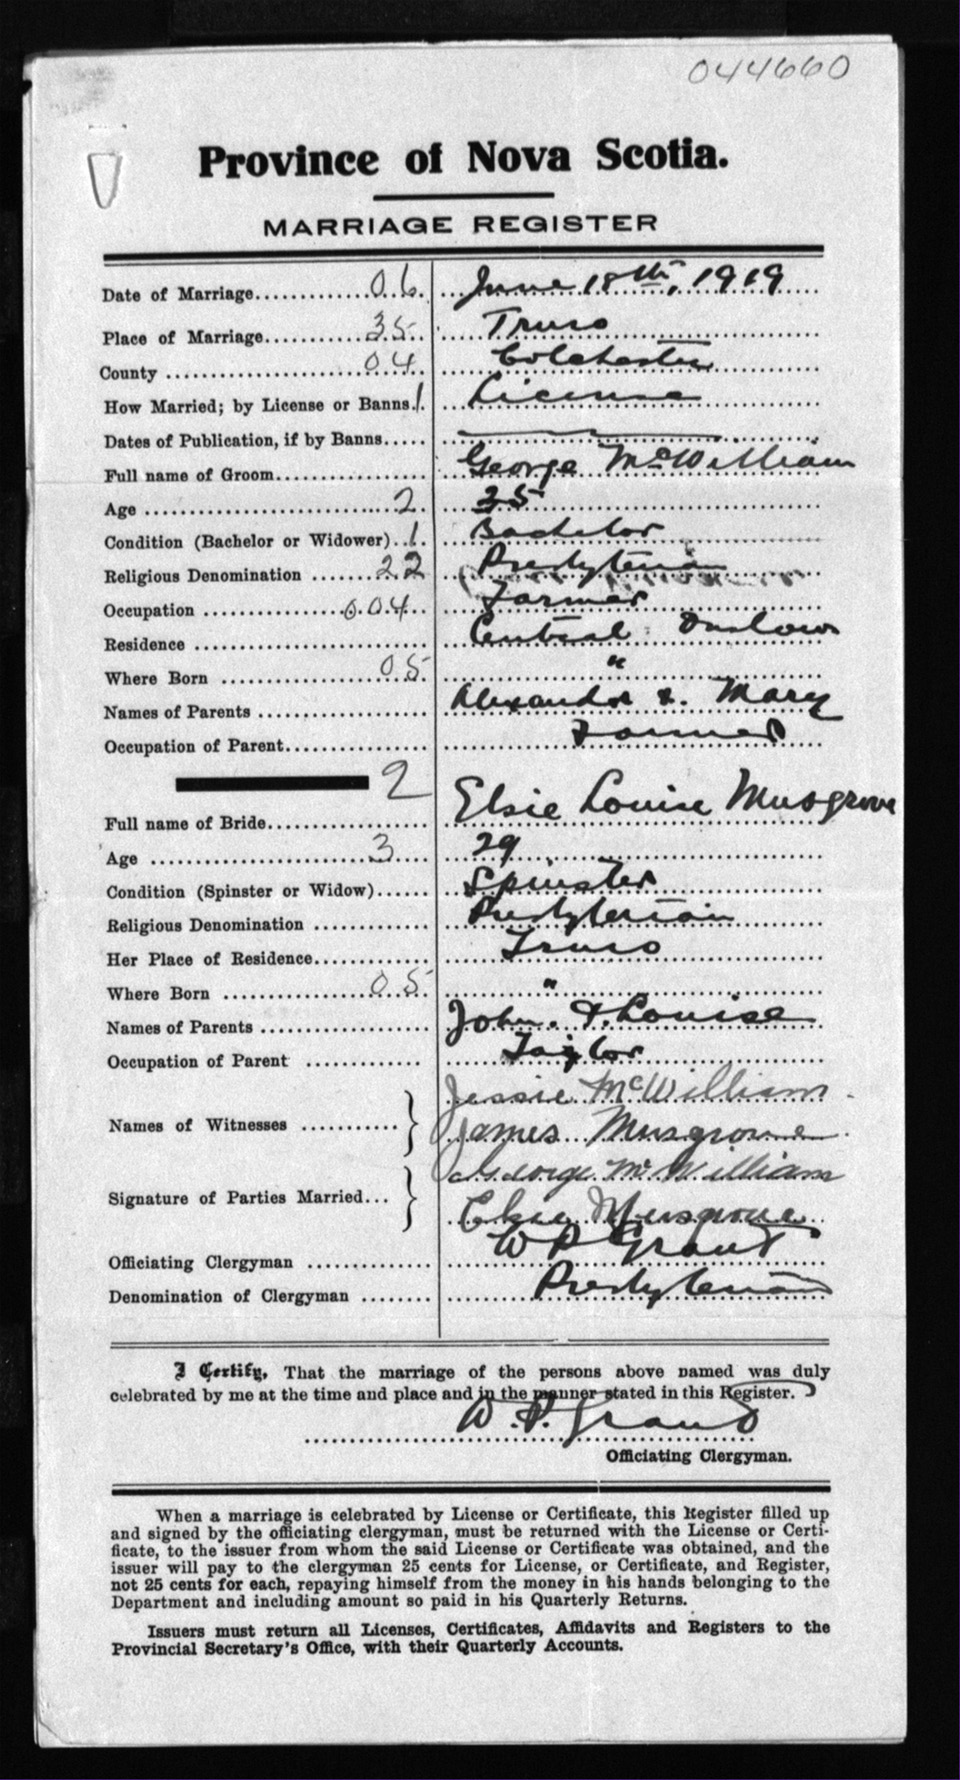 044660
Province of Nova Scotia.
MARRIAGE REGISTER
Date of Marriage 06 June 18th, 1919
Place of Marriage 35 Truro
County 04 Colchester
How Married; by License or Banns. 1 License
Dates of Publication, if by Banns
Full name of Groom George McWilliam
Age 2 25
Condition (Bachelor or Widower) 1 Bachelor
Religious Denomination 22 Presbyterian
Occupation 004 Farmer
Residence Central Onslow
Where Born 05 "
Names of Parents Alexander & Mary
Occupation of Parent Farmer
2
Full name of Bride Elsie Louise Musgrove
Age 3 29
Condition (Spinster or Widow) Spinster
Religious Denomination Presbyterian
Her Place of Residence Truro
Where Born 05 "
Names of Parents John & Louise
Occupation of Parent Tailor
Jessie McWilliam
Names of Witnesses
James Musgrove
George McWilliam
Signature of Parties Married
Elsie Musgrove
Officiating Clergyman W P Grant
Denomination of Clergyman Presbyterian
I Certify, That the marriage of the persons above named was duly
celebrated by me at the time and place and in the manner stated in this Register.
W. P. Grant
Officiating Clergyman.
When a marriage is celebrated by License or Certificate, this Register filled up
and signed by the officiating clergyman, must be returned with the License or Certi-
ficate, to the issuer from whom the said License or Certificate was obtained, and the
issuer will pay to the clergyman 25 cents for License, or Certificate, and Register,
not 25 cents for each, repaying himself from the money in his hands belonging to the
Department and including amount so paid in his Quarterly Returns.
Issuers must return all Licenses, Certificates, Affidavits and Registers to the
Provincial Secretary's Office, with their Quarterly Accounts.